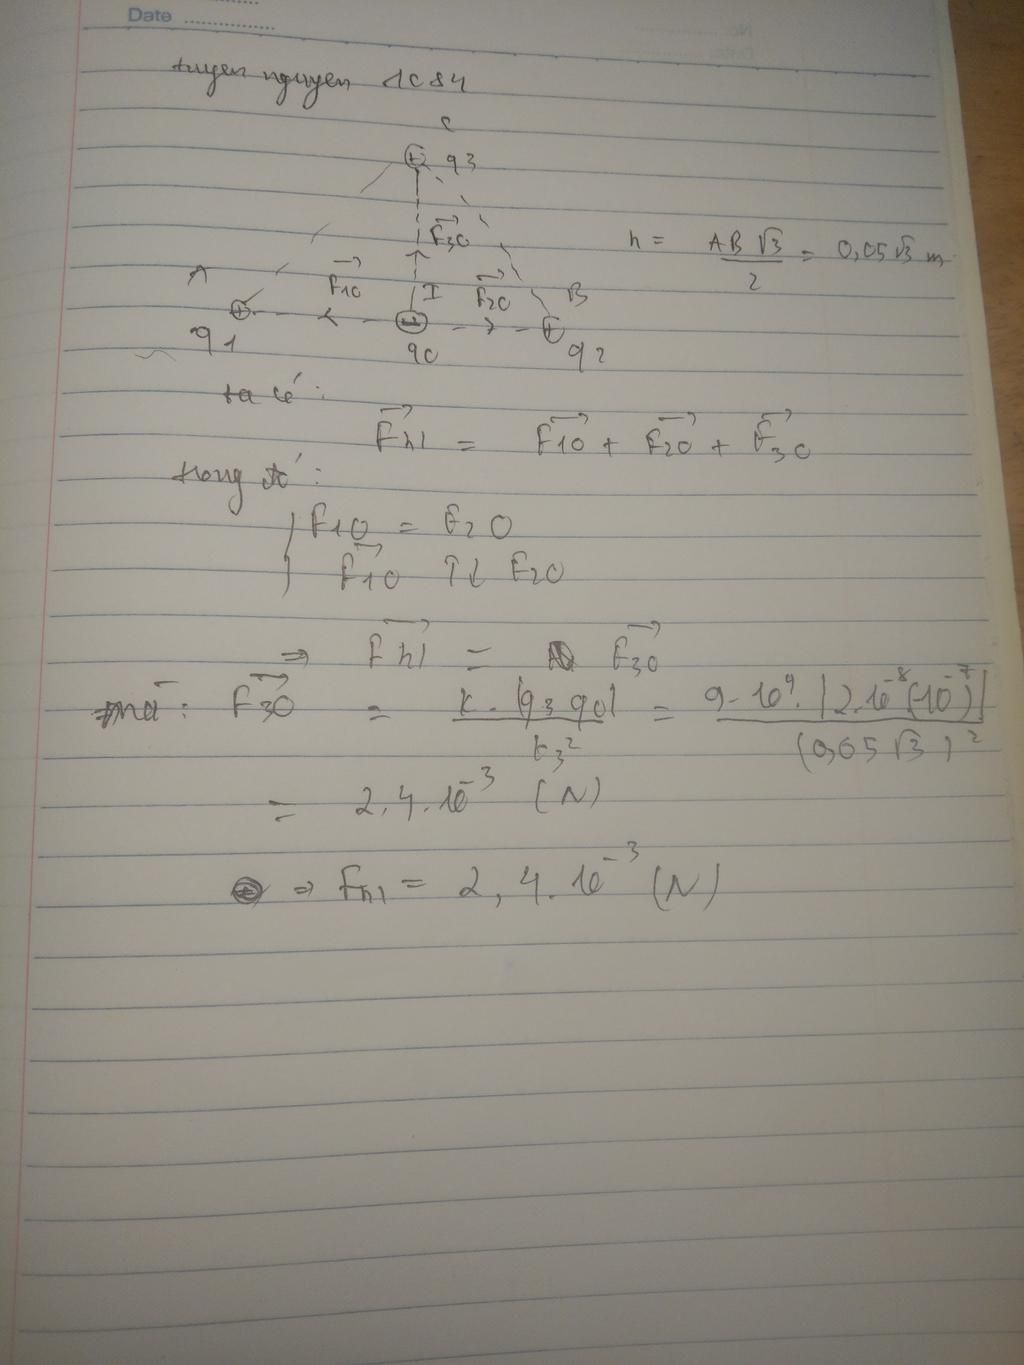 Date ..............
tuyen nguyen 1C84
C
q3
F30
h = AB√3 / 2 = 0,05√3 m
A
F10
I
F20
B
q1
q0
q2
ta có :
Fhl = F10 + F20 + F30
trong đó :
F10 = F20
F10 ↑↓ F20
⇒ Fhl = F30
mà : F30 = k.|q3 q0| / r3² = 9.10⁹.|2.10⁻⁸(-10⁻⁷)| / (0,05√3)²
= 2,4.10⁻³ (N)
⇒ Fhl = 2,4.10⁻³ (N)